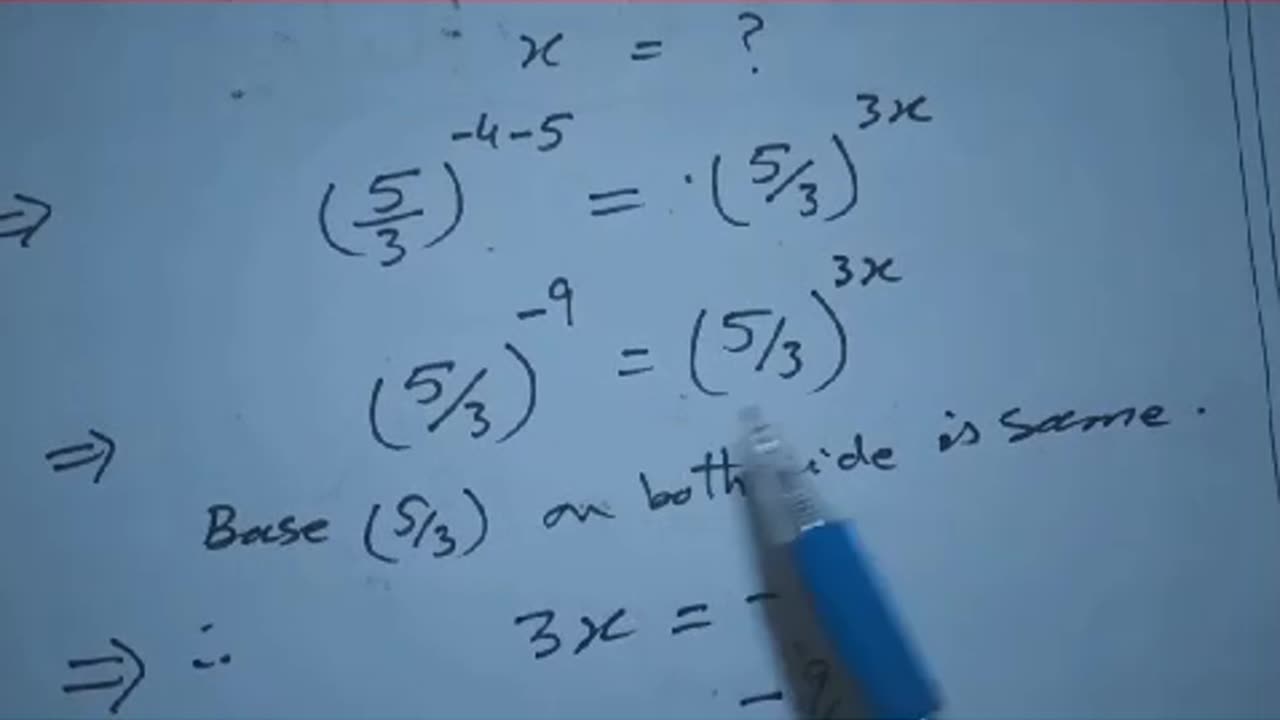 x = ?
⇒ (5/3)^-4-5 = (5/3)^3x
⇒ (5/3)^-9 = (5/3)^3x
Base (5/3) on both is same.
⇒ ∴ 3x = -
-9